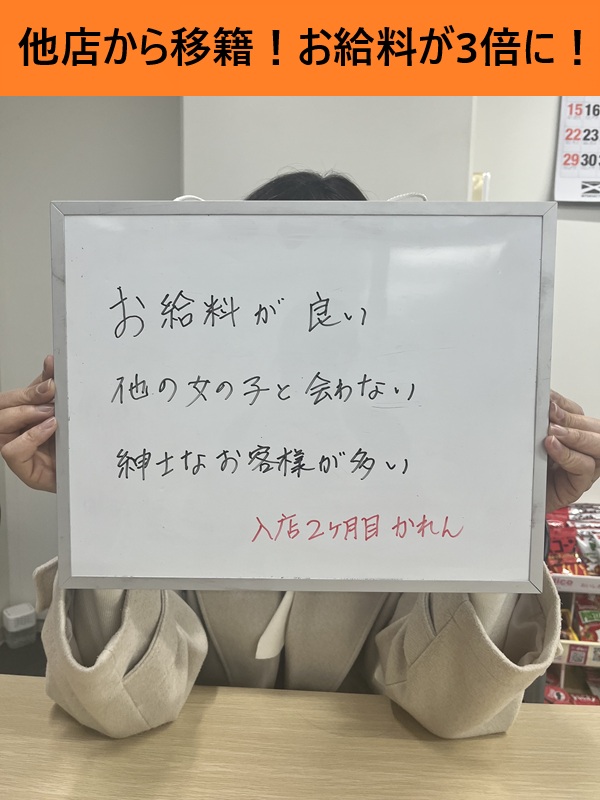 他店から移籍！お給料が3倍に！
15 16
22 23
29 30
お給料が良い
他の女の子と会わない
紳士なお客様が多い
入店2ヶ月目 かれん